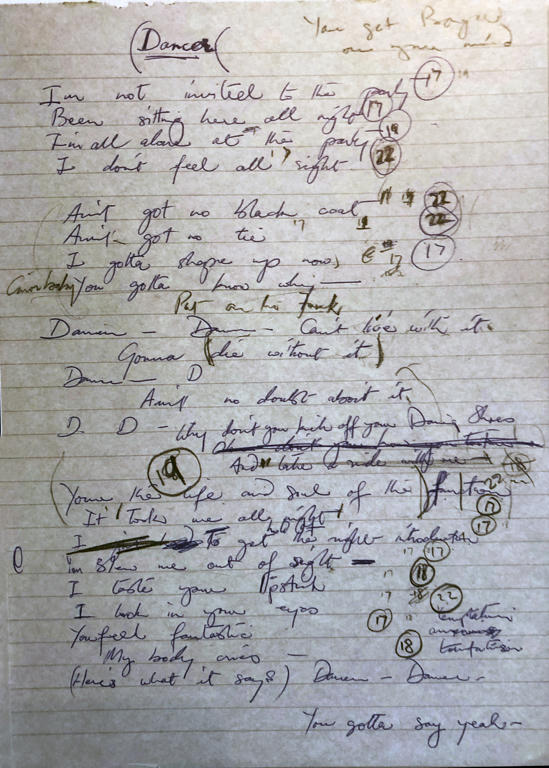 You got
on your mind
(Dancer(
I'm not invited to the party 17 19
Been sitting here all night 17
I'm all alone at the party 19
I don't feel all right 22
Ain't got no black coat 22
Ain't got no tie 22
I gotta shape up now, 17
You gotta know why —
Put on
Dancer — Dancer — Can't live with it
Gonna (die without it)
Dancer — D
Ain't no doubt about it
D. D — Why don't you kick off your Dancing Shoes
And take a ride with me 18
19
You're the life and soul of the function 22
It took me all night 17
I to get the right introduction 17
me out of sight — 17 17
I taste your lipstick 17 18
I look in your eyes 22
You feel fantastic 17 temptation
My body cries — 18 temptation
(Here's what it says) Dancer — Dancer —
You gotta say yeah —